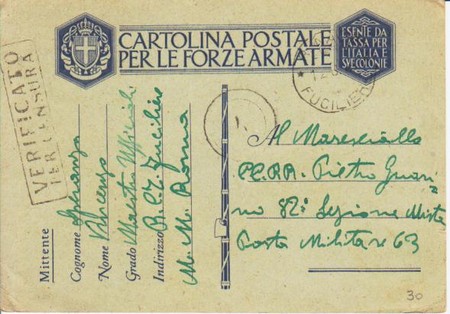 CARTOLINA POSTALE
PER LE FORZE ARMATE
ESENTE DA
TASSA PER
L'ITALIA E
SVE COLONIE
VERIFICATO
PER CENSURA
FUCILIERI
Mittente
Cognome
Nome Vincenzo
Grado Maestro Ufficiale
Indirizzo
M. M. Roma
Al Maresciallo
CC.RR. Pietro Guari
no 82ª Sezione Mista
Posta Militare 63
30